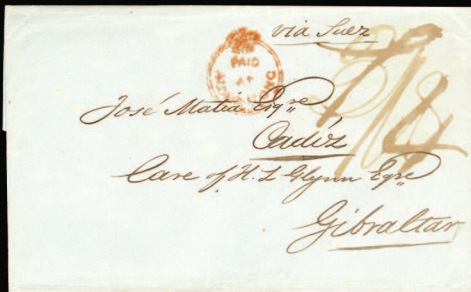 via Suez
PAID
AT
José Matia Esqre
Cadiz
Care of H. L Glynn Esqre
Gibraltar